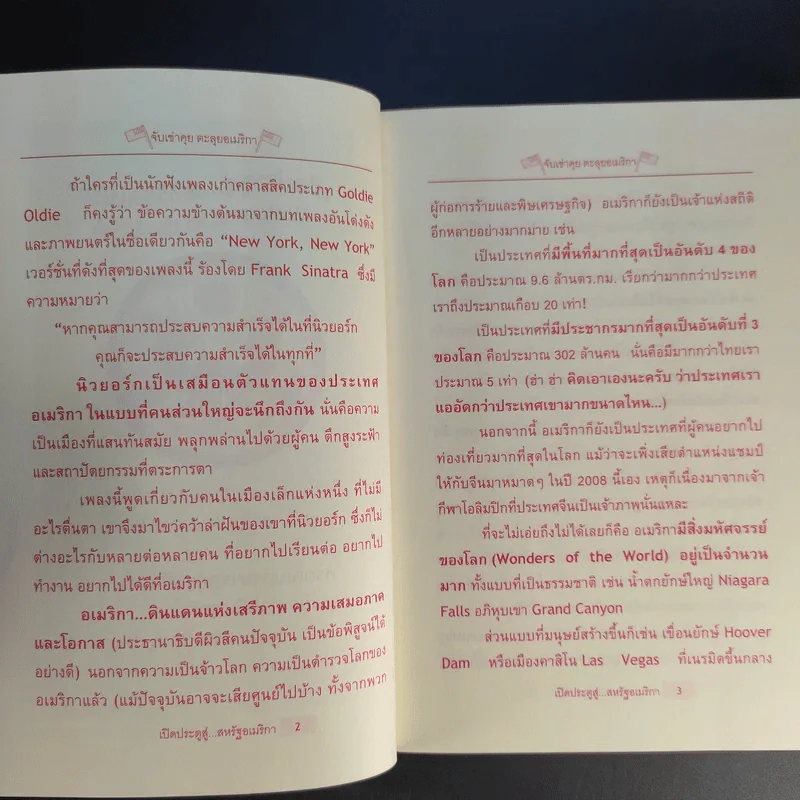 จับเข่าคุย ตะลุยอเมริกา
ถ้าใครที่เป็นนักฟังเพลงเก่าคลาสสิคประเภท Goldie
Oldie ก็คงรู้ว่า ข้อความข้างต้นมาจากบทเพลงอันโด่งดัง
และภาพยนตร์ในชื่อเดียวกันคือ “New York, New York”
เวอร์ชั่นที่ดังที่สุดของเพลงนี้ ร้องโดย Frank Sinatra ซึ่งมี
ความหมายว่า
“หากคุณสามารถประสบความสำเร็จได้ในที่นิวยอร์ก
คุณก็จะประสบความสำเร็จได้ในทุกที่”
นิวยอร์กเป็นเสมือนตัวแทนของประเทศ
อเมริกา ในแบบที่คนส่วนใหญ่จะนึกถึงกัน นั่นคือความ
เป็นเมืองที่แสนทันสมัย พลุกพล่านไปด้วยผู้คน ตึกสูงระฟ้า
และสถาปัตยกรรมที่ตระการตา
เพลงนี้พูดเกี่ยวกับคนในเมืองเล็กแห่งหนึ่ง ที่ไม่มี
อะไรตื่นตา เขาจึงมาไขว่คว้าล่าฝันของเขาที่นิวยอร์ก ซึ่งก็ไม่
ต่างอะไรกับหลายต่อหลายคน ที่อยากไปเรียนต่อ อยากไป
ทำงาน อยากไปได้ดีที่อเมริกา
อเมริกา...ดินแดนแห่งเสรีภาพ ความเสมอภาค
และโอกาส (ประธานาธิบดีผิวสีคนปัจจุบัน เป็นข้อพิสูจน์ได้
อย่างดี) นอกจากความเป็นจ้าวโลก ความเป็นตำรวจโลกของ
อเมริกาแล้ว (แม้ปัจจุบันอาจจะเสียศูนย์ไปบ้าง ทั้งจากพวก
เปิดประตูสู่...สหรัฐอเมริกา 2
จับเข่าคุย ตะลุยอเมริกา
ผู้ก่อการร้ายและพิษเศรษฐกิจ) อเมริกาก็ยังเป็นเจ้าแห่งสถิติ
อีกหลายอย่างมากมาย เช่น
เป็นประเทศที่มีพื้นที่มากที่สุดเป็นอันดับ 4 ของ
โลก คือประมาณ 9.6 ล้านตร.กม. เรียกว่ามากกว่าประเทศ
เราถึงประมาณเกือบ 20 เท่า!
เป็นประเทศที่มีประชากรมากที่สุดเป็นอันดับที่ 3
ของโลก คือประมาณ 302 ล้านคน นั่นคือมีมากกว่าไทยเรา
ประมาณ 5 เท่า (ฮ่า ฮ่า คิดเอาเองนะครับ ว่าประเทศเรา
แออัดกว่าประเทศเขามากขนาดไหน...)
นอกจากนี้ อเมริกาก็ยังเป็นประเทศที่ผู้คนอยากไป
ท่องเที่ยวมากที่สุดในโลก แม้ว่าจะเพิ่งเสียตำแหน่งแชมป์
ให้กับจีนมาหมาดๆ ในปี 2008 นี้เอง เหตุก็เนื่องมาจากเจ้า
กีฬาโอลิมปิกที่ประเทศจีนเป็นเจ้าภาพนั่นแหละ
ที่จะไม่เอ่ยถึงไม่ได้เลยก็คือ อเมริกามีสิ่งมหัศจรรย์
ของโลก (Wonders of the World) อยู่เป็นจำนวน
มาก ทั้งแบบที่เป็นธรรมชาติ เช่น น้ำตกยักษ์ใหญ่ Niagara
Falls อภิหุบเขา Grand Canyon
ส่วนแบบที่มนุษย์สร้างขึ้นก็เช่น เขื่อนยักษ์ Hoover
Dam หรือเมืองคาสิโน Las Vegas ที่เนรมิตขึ้นกลาง
เปิดประตูสู่...สหรัฐอเมริกา 3